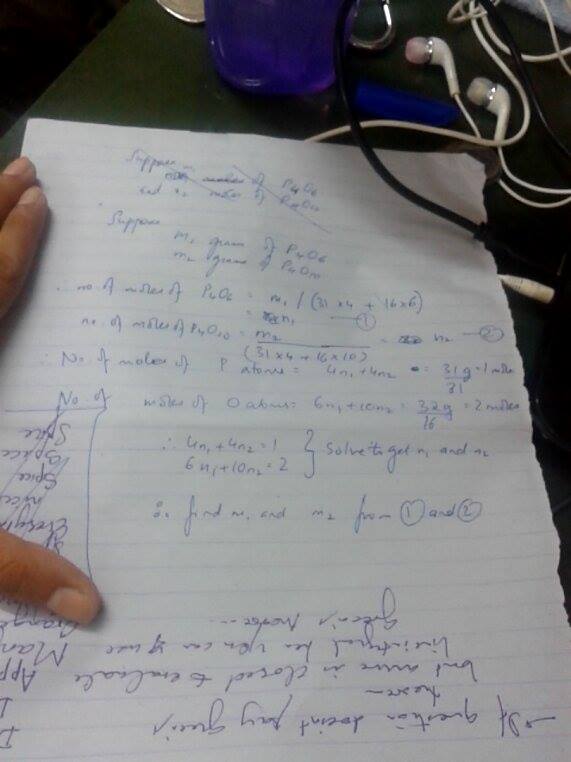 Suppose
n1 moles of P4O6
and n2 moles of P4O10
Suppose
m1 grams of P4O6
m2 grams of P4O10
∴ no. of moles of P4O6 = m1 / (31×4 + 16×6)
= n1 — ①
no. of moles of P4O10 = m2 / (31×4+16×10) = n2 — ②
∴ No. of moles of P atoms = 4n1+4n2 = 31g/31 = 1 mole
No. of moles of O atoms = 6n1+10n2 = 32g/16 = 2 moles
∴ 4n1+4n2 = 1
6n1+10n2 = 2 } Solve to get n1 and n2
∴ find m1 and m2 from ① and ②
Spice
Spice
Spice
→ If question doesn't say Green's
but curve is closed to evaluate
line integral then you can use
Green's